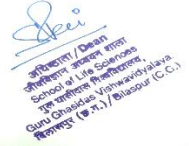 अधिष्ठाता/Dean
जीवविज्ञान अध्ययन शाला
School of Life Sciences
गुरू घासीदास विश्वविद्यालय,
Guru Ghasidas Vishwavidyalaya
बिलासपुर (छ.ग.)/Bilaspur (C.G.)